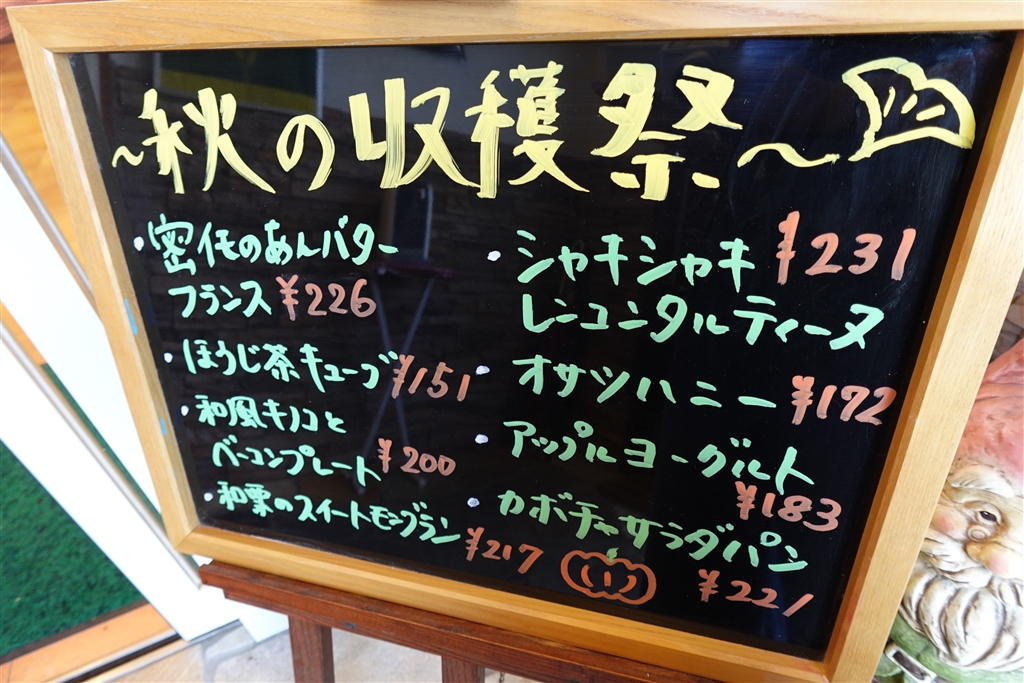 ~秋の収穫祭~
・密代のあんバター
フランス ¥226
・ほうじ茶キューブ ¥151
・和風キノコと
ベーコンプレート ¥200
・和栗のスイートモンブラン ¥217
・シャキシャキ ¥231
レンコンタルティーヌ
・オサツハニー ¥172
・アップルヨーグルト
¥183
・カボチャサラダパン
¥221